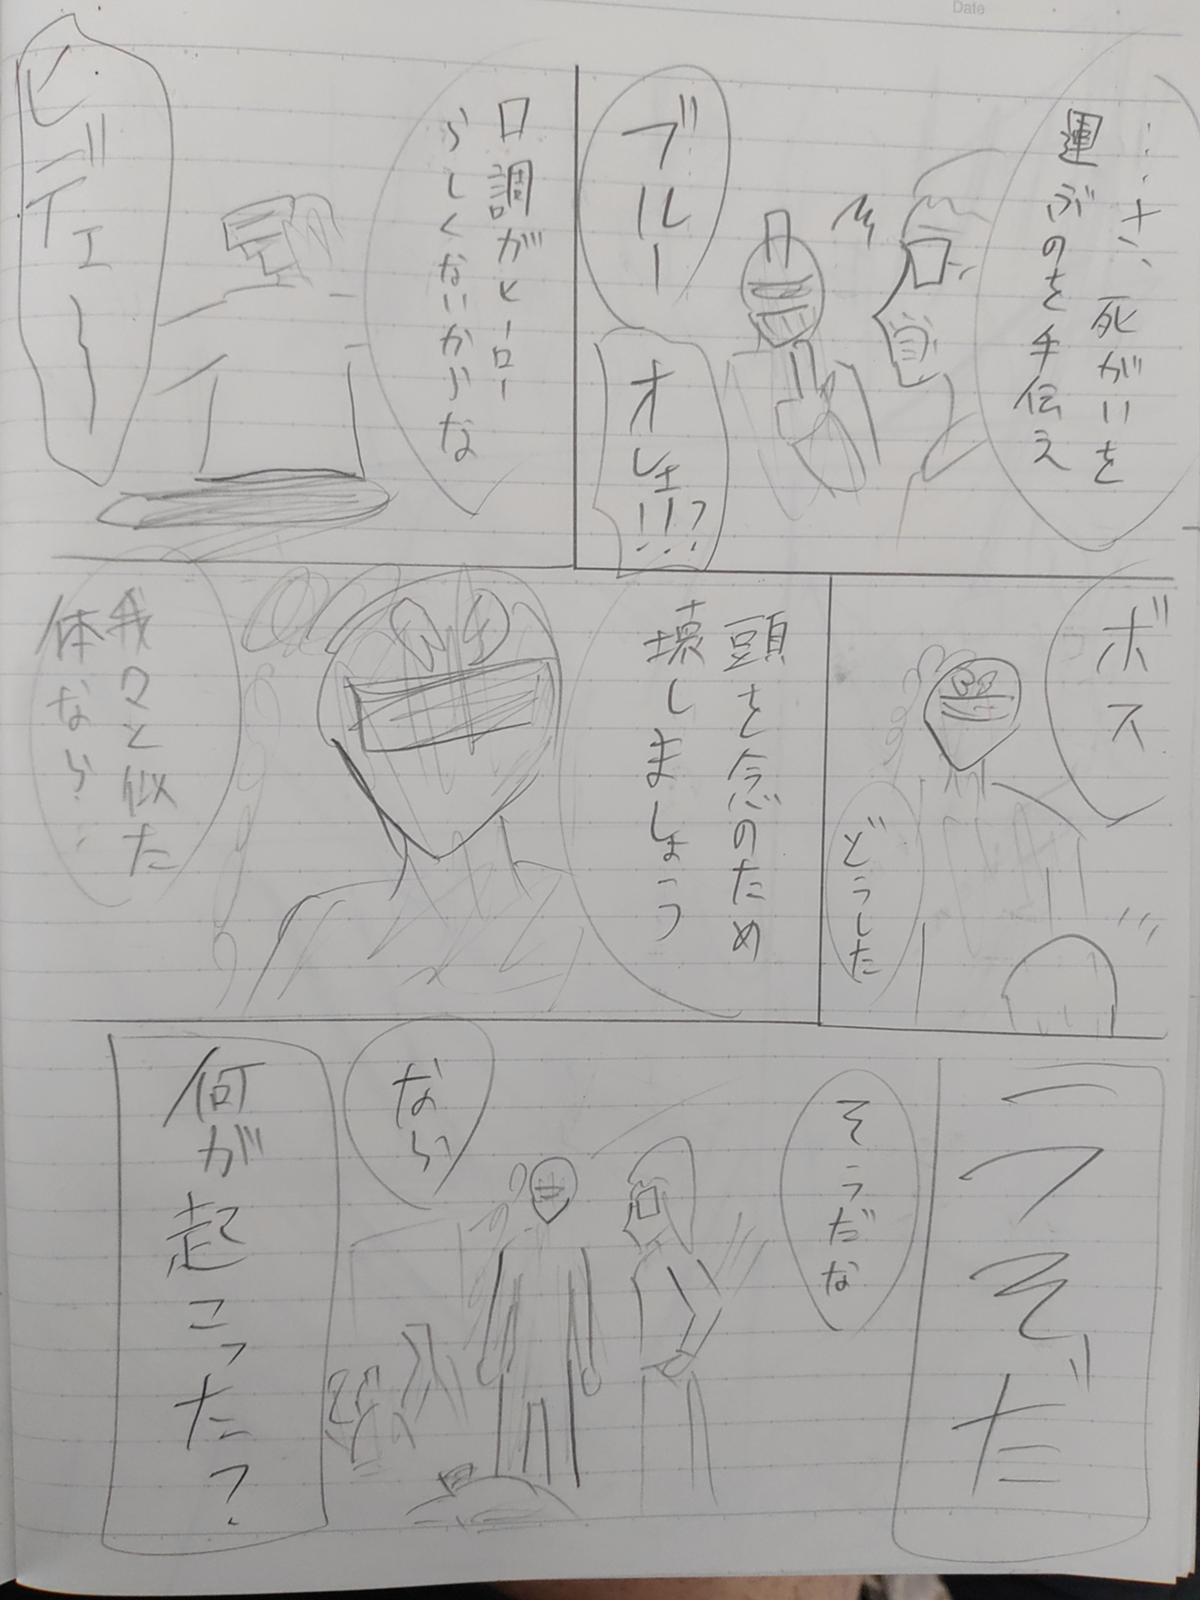 Date
死がいを
運ぶのを手伝え
ブルー
オレ!!!?
口調がヒーロー
らしくないからな
ビデェー
ボス
どうした
頭を念のため
壊しましょう
我々と似た
体なら…
うそだ
そうだな
なら
何が起こった?